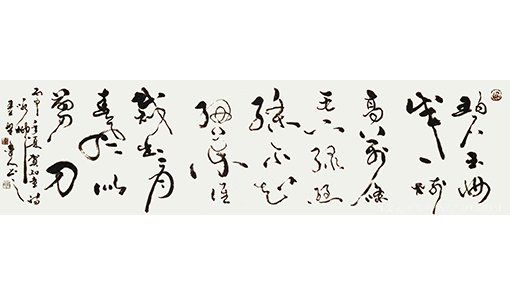 碧玉妆
成一树
高万條垂
下绿丝
绦不知
细叶谁
裁出二月
春风似
剪刀
丙申 夏贺知章诗
咏柳